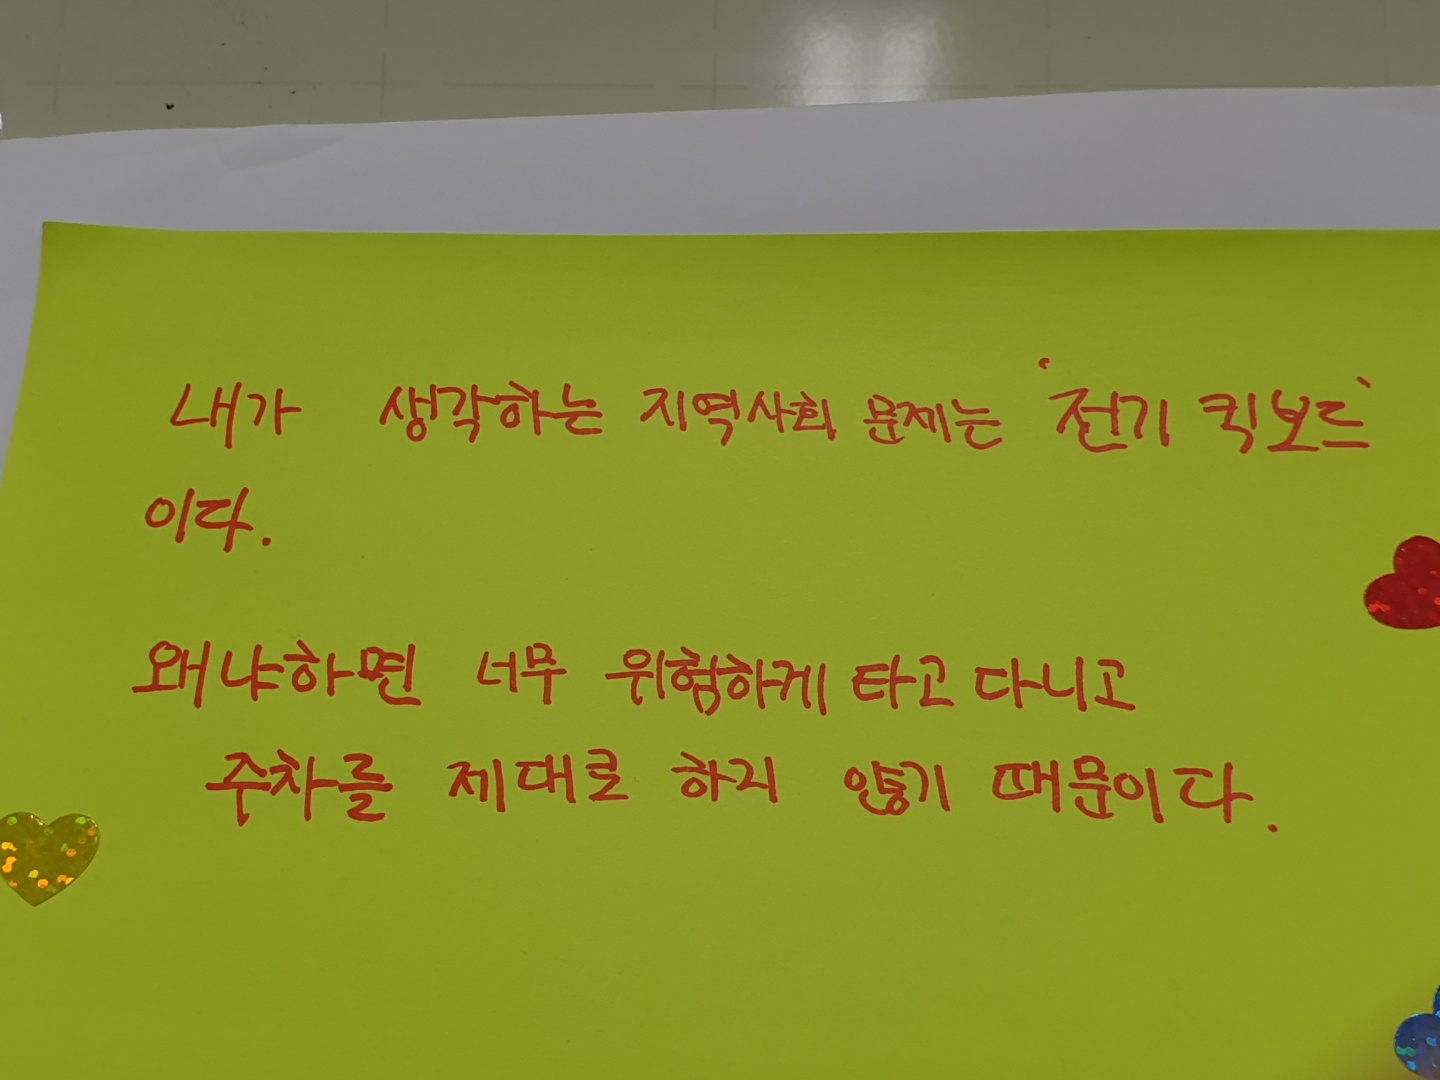 내가 생각하는 지역사회 문제는 '전기 킥보드'
이다.
왜냐하면 너무 위험하게 타고 다니고
주차를 제대로 하지 않기 때문이다.